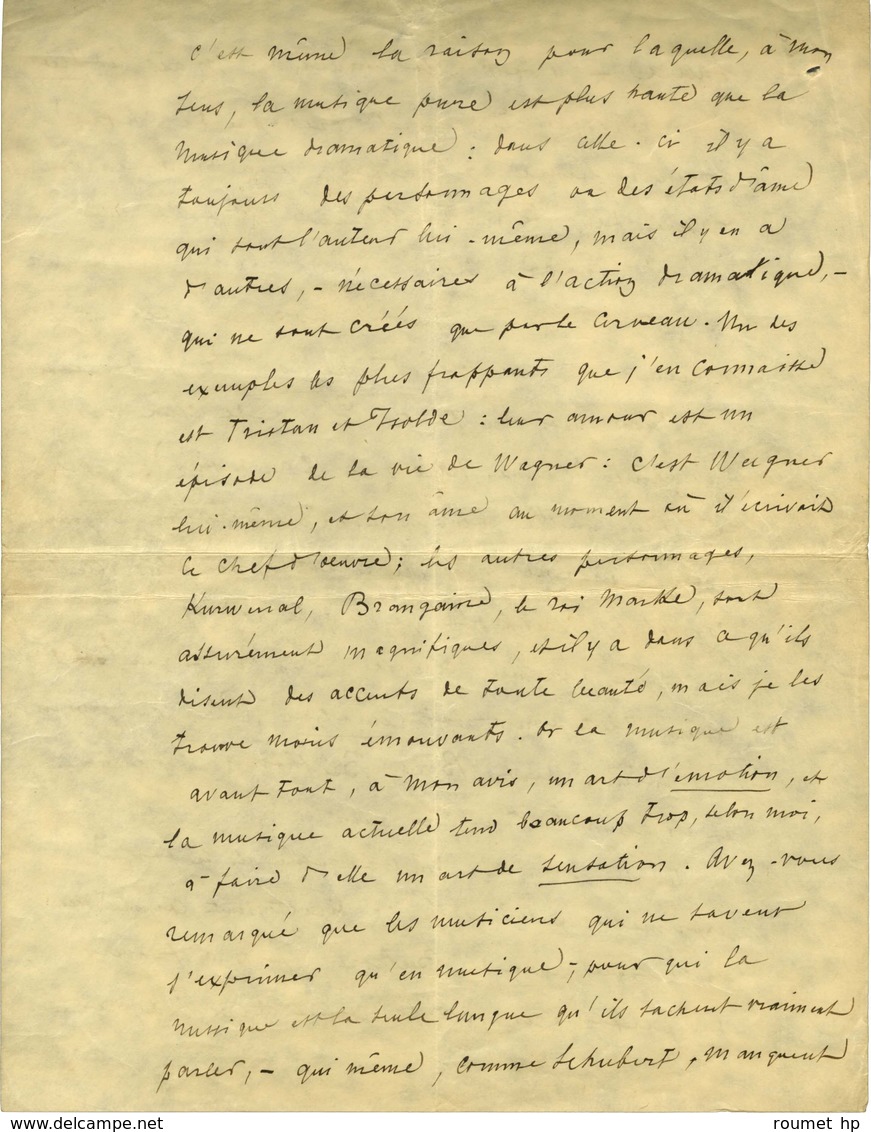 c'est même la raison pour laquelle, à mon
sens, la musique pure est plus haute que la
musique dramatique : dans celle-ci il y a
toujours des personnages ou des états d'âme
qui sont l'auteur lui-même, mais il y en a
d'autres, - nécessaires à l'action dramatique, -
qui ne sont créés que par le cerveau. Un des
exemples les plus frappants que j'en connaisse
est Tristan et Isolde : leur amour est un
épisode de la vie de Wagner : c'est Wagner
lui-même, et son âme au moment où il écrivait
le chef d'oeuvre ; les autres personnages,
Kurwenal, Brangaine, le roi Marke, sont
assurément magnifiques, et il y a dans ce qu'ils
disent des accents de toute beauté, mais je les
trouve moins émouvants. Or la musique est
avant tout, à mon avis, un art d'émotion, et
la musique actuelle tend beaucoup trop, selon moi,
à faire d'elle un art de sensation. Avez-vous
remarqué que les musiciens qui ne savent
s'exprimer qu'en musique, - pour qui la
musique est la seule langue qu'ils sachent vraiment
parler, - qui même, comme Schubert, manquent
roumet hp